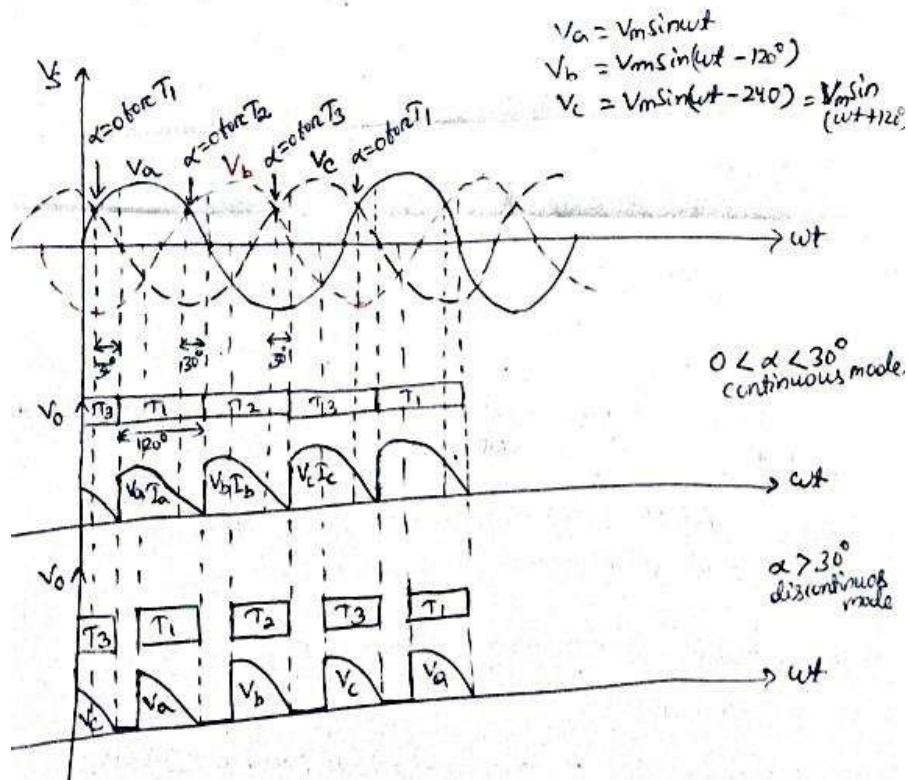 Va = Vm sinωt
Vb = Vm sin(ωt - 120°)
Vc = Vm sin(ωt - 240) = Vm sin
(ωt + 120°
Vs
α=0 for T1
α=0 for T2
α=0 for T3
α=0 for T1
Va
Vb
Vc
ωt
30°
30°
30°
0 < α < 30°
continuous mode.
Vo
T3
T1
T2
T3
T1
120°
Va Ia
Vb Ib
Vc Ic
ωt
Vo
α > 30°
discontinuos
mode
T3
T1
T2
T3
T1
Vc
Va
Vb
Vc
Va
ωt